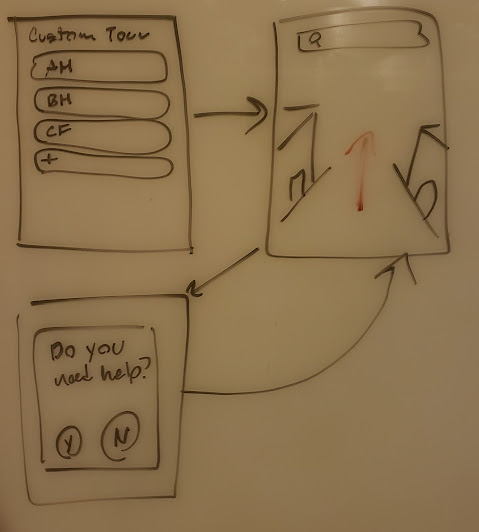 Custom Tour
AH
BH
CF
+
Do you
need help?
Y
N